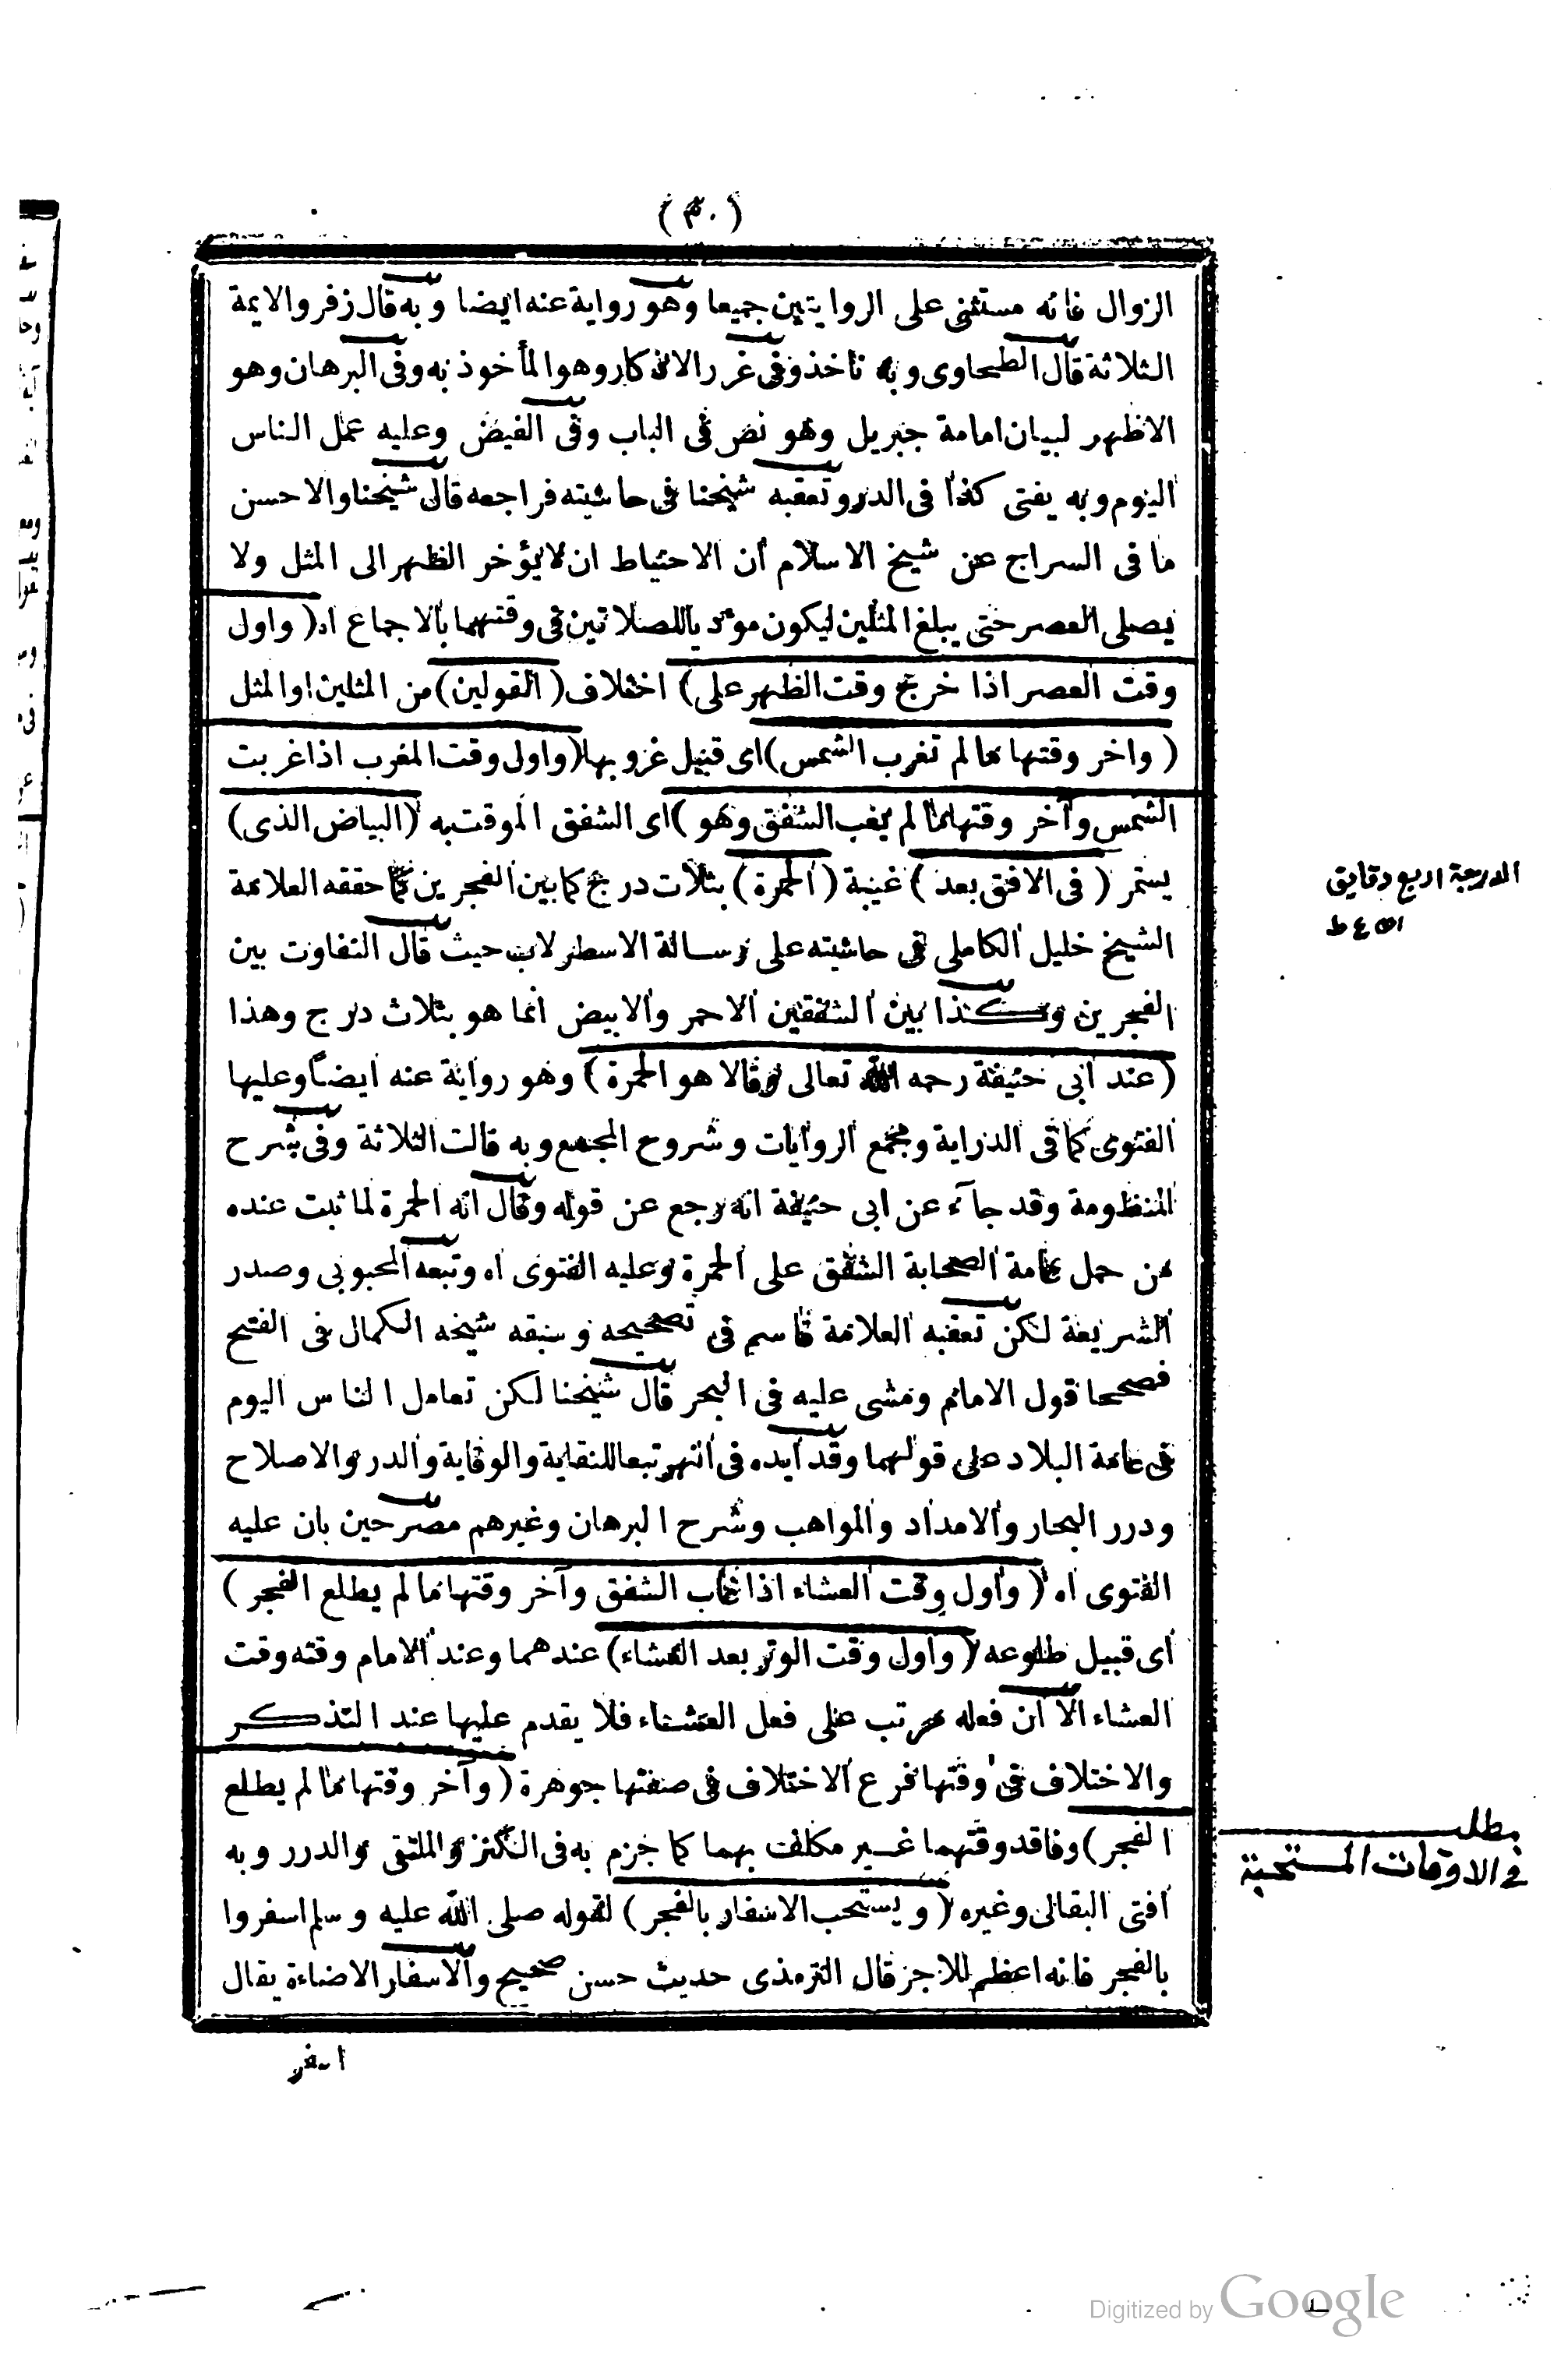 (٣٠)
الزوال فانه مستثنى على الروايتين جميعا وهو رواية عنه ايضا وبه قال زفر والايمة
الثلاثة قال الطحاوى وبه ناخذ وفى غرر الاذكار وهو المأخوذ به وفى البرهان وهو
الاظهر لبيان امامة جبريل وهو نص فى الباب وفى الفيض وعليه عمل الناس
اليوم وبه يفتى كذا فى الدر وتعقبه شيخنا فى حاشيته فراجعه قال شيخنا والاحسن
ما فى السراج عن شيخ الاسلام أن الاحتياط ان لا يؤخر الظهر الى المثل ولا
يصلى العصر حتى يبلغ المثلين ليكون مؤديا للصلاتين فى وقتهما بالاجماع اه (واول
وقت العصر اذا خرج وقت الظهر على) اختلاف (القولين) من المثلين او المثل
(واخر وقتها مالم تغرب الشمس) اى قبيل غروبها (واول وقت المغرب اذا غربت
الشمس وآخر وقتها مالم يغب الشفق وهو) اى الشفق الموقت به (البياض الذى)
يستمر (فى الافق بعد) غيبة (الحمرة) بثلاث درج كما بين الفجرين كما حققه العلامة
الشيخ خليل الكاملى فى حاشيته على رسالة الاسطرلاب حيث قال التفاوت بين
الفجرين وكذا بين الشفقين الاحمر والابيض انما هو بثلاث درج وهذا
(عند ابى حنيفة رحمه الله تعالى وقالا هو الحمرة) وهو رواية عنه ايضاً وعليها
الفتوى كما فى الدراية ومجمع الروايات وشروح المجمع وبه قالت الثلاثة وفى شرح
المنظومة وقد جآء عن ابى حنيفة انه رجع عن قوله وقال انه الحمرة لما ثبت عنده
من حمل عامة الصحابة الشفق على الحمرة وعليه الفتوى اه وتبعه المحبوبى وصدر
الشريعة لكن تعقبه العلامة قاسم فى تصحيحه وسبقه شيخه الكمال فى الفتح
فصححا قول الامام ومشى عليه فى البحر قال شيخنا لكن تعامل الناس اليوم
فى عامة البلاد على قولهما وقد أيده فى النهر تبعا للنقاية والوقاية والدرر والاصلاح
ودرر البحار والامداد والمواهب وشرح البرهان وغيرهم مصرحين بان عليه
الفتوى اه (واول وقت العشاء اذا غاب الشفق وآخر وقتها مالم يطلع الفجر)
اى قبيل طلوعه (واول وقت الوتر بعد العشاء) عندهما وعند الامام وقته وقت
العشاء الا ان فعله مرتب على فعل العشاء فلا يقدم عليها عند التذكر
والاختلاف فى وقتها فرع الاختلاف فى صفتها جوهرة (وآخر وقتها مالم يطلع
الفجر) وفاقد وقتهما غير مكلف بهما كما جزم به فى الكنز والملتقى والدرر وبه
افتى البقالى وغيره (ويستحب الاسفار بالفجر) لقوله صلى الله عليه وسلم اسفروا
بالفجر فانه اعظم للاجر قال الترمذى حديث حسن صحيح والاسفار الاضاءة يقال
اسفر
الدرجة اربع دقايق
مطلب
فى الاوقات المستحبة
Digitized by Google